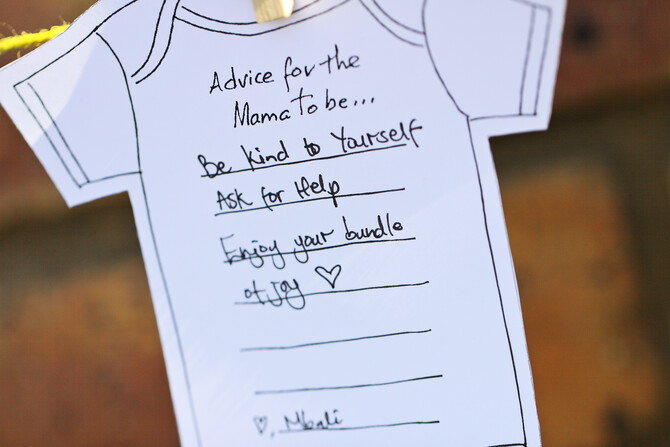 Advice for the
Mama to be...
Be Kind to Yourself
Ask for Help
Enjoy your bundle
of joy ♡
♡, Mbali